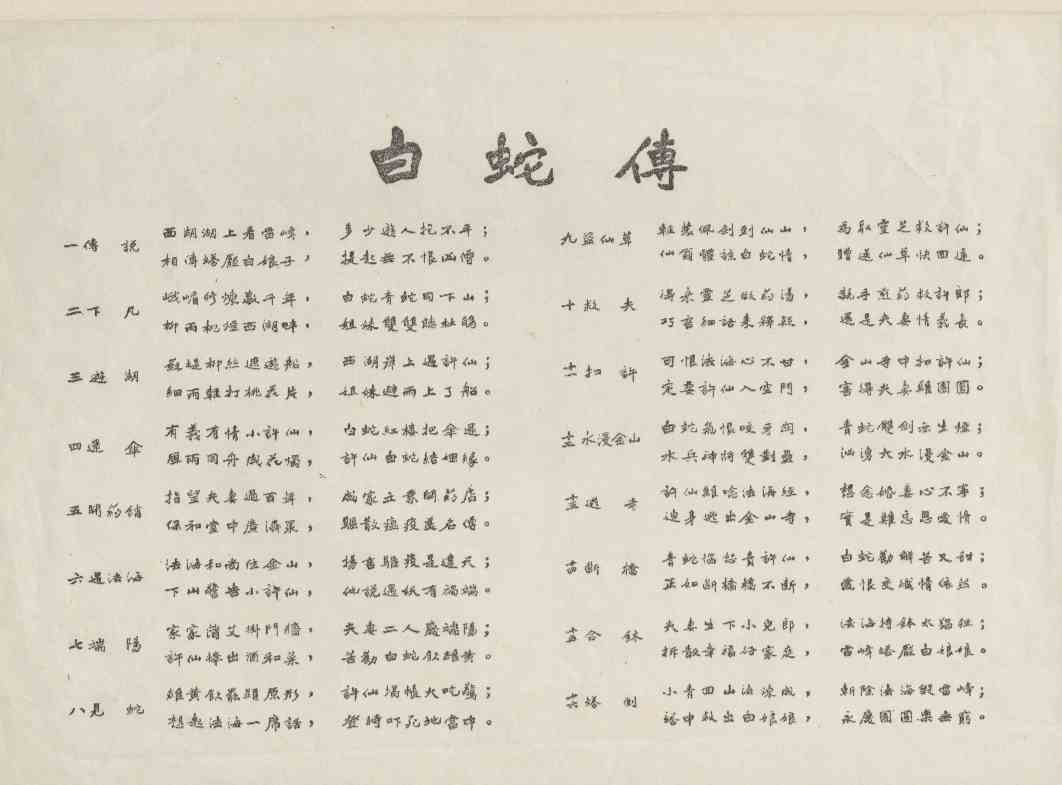 白蛇傳
一傳說
西湖湖上看雷峰，多少遊人記不平；
相傳塔壓白娘子，提起無不恨凶僧。
二下凡
峨嵋修煉數千年，白蛇青蛇同下山；
柳雨桃煙西湖畔，姐妹雙雙臨杜鵑。
三遊湖
蘇堤柳絲遮遊船，西湖岸上遇許仙；
細雨輕打桃花片，姐妹避雨上了船。
四還傘
有義有情小許仙，白蛇紅樓把傘還；
風雨同舟成花燭，許仙白蛇結姻緣。
五開葯鋪
指望夫妻過百年，成家立業開葯店；
保和堂中廣濟眾，驅散瘟疫蓋名傳。
六遇法海
法海和尚住金山，揚言驅疫是違天；
下山警告小許仙，他說遇妖有禍端。
七端陽
家家蒲艾掛門牆，夫妻二人慶端陽；
許仙捧出酒和菜，苦勸白蛇飲雄黃。
八見蛇
雄黃飲罷顯原形，許仙揭帳大吃驚；
想起法海一席話，登時吓死地當中。
九盜仙草
輕裝佩劍到仙山，為取靈芝救許仙；
仙翁體諒白蛇情，贈送仙草快回還。
十救夫
得來靈芝做葯湯，親手煎葯救許郎；
巧言細語來釋疑，還是夫妻情義長。
十一扣許
可恨法海心不甘，金山寺中扣許仙；
定要許仙入空門，害得夫妻難團圓。
十二水漫金山
白蛇氣恨咬牙關，青蛇雙劍亦生煙；
水兵神將雙對壘，汹湧大水漫金山。
十三逃寺
許仙難唸法海經，想念婚妻心不寧；
連身逃出金山寺，實是難忘恩愛情。
十四斷橋
青蛇惱怒責許仙，白蛇勸解苦又甜；
正如斷橋橋不斷，愛恨交織情依然。
十五合鉢
夫妻生下小兒郎，法海持鉢太猖狂；
拆散幸福好家庭，雷峰塔壓白娘娘。
十六塔倒
小青回山法煉成，斬除法海毀雷峰；
塔中救出白娘娘，永慶團圓樂無窮。